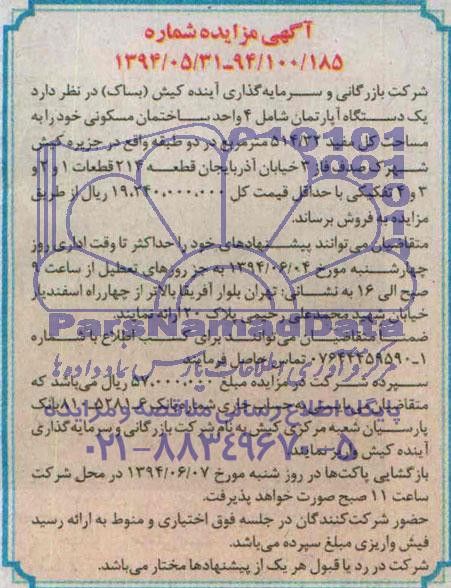 آگهی مزایده شماره
۹۴/۱۰۰/۱۸۵-۱۳۹۴/۰۵/۳۱
شرکت بازرگانی و سرمایه‌گذاری آینده کیش (بساک) در نظر دارد
یک دستگاه آپارتمان شامل ۴ واحد ساختمان مسکونی خود را به
مساحت کل مفید ۵۱۴/۳۲ مترمربع در دو طبقه واقع در جزیره کیش
شهرک صدف فاز ۳ خیابان آذربایجان قطعه ۲۱۴ قطعات ۱ و ۲ و
۳ و ۴ تفکیکی با حداقل قیمت کل ۱۹،۲۴۰،۰۰۰،۰۰۰ ریال از طریق
مزایده به فروش برساند.
متقاضیان می‌توانند پیشنهادهای خود را حداکثر تا وقت اداری روز
چهارشنبه مورخ ۱۳۹۴/۰۶/۰۴ به جز روزهای تعطیل از ساعت ۹
صبح الی ۱۶ به نشانی: تهران بلوار آفریقا بالاتر از چهارراه اسفندیار
خیابان شهید محمدعلی رحیمی پلاک ۲۰ ارائه نمایند.
ParsNamadData
ضمنا متقاضیان می‌توانند برای کسب اطلاع با شماره
۱-۰۷۶۴۴۴۵۹۵۹۰ تماس حاصل فرمایند.
سپرده شرکت در مزایده مبلغ ۵۷۰،۰۰۰،۰۰۰ ریال می‌باشد که
متقاضیان به حساب جاری شماره بانک
پایگاه اطلاع رسانی مناقصه و مزایده
پارسیان شعبه مرکزی کیش به نام شرکت بازرگانی و سرمایه‌گذاری
آینده کیش واریز نمایند.
۰۲۱-۸۸۳۴۹۶۷۰-۵
بازگشایی پاکت‌ها در روز شنبه مورخ ۱۳۹۴/۰۶/۰۷ در محل شرکت
ساعت ۱۱ صبح صورت خواهد پذیرفت.
حضور شرکت‌کنندگان در جلسه فوق اختیاری و منوط به ارائه رسید
فیش واریزی مبلغ سپرده می‌باشد.
شرکت در رد یا قبول هر یک از پیشنهادها مختار می‌باشد.